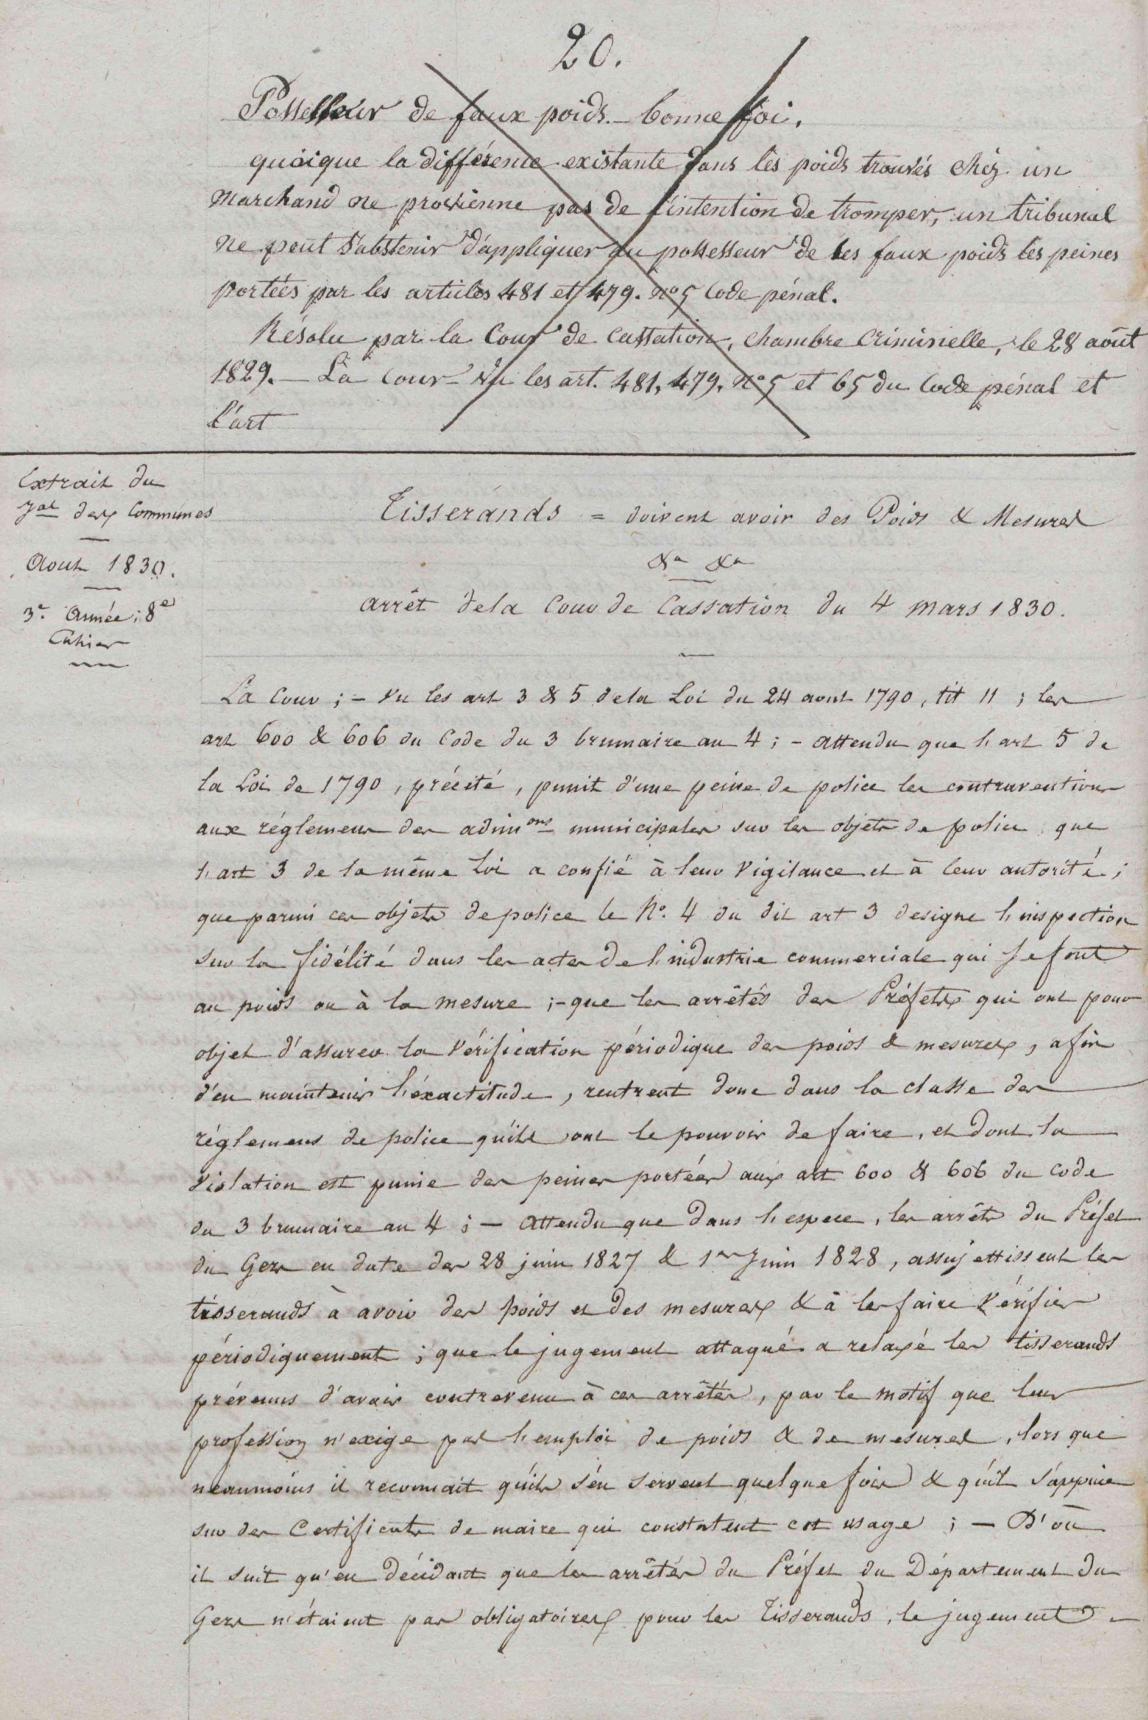 20.
Possesseur de faux poids. - bonne foi.
quoique la différence existante dans les poids trouvés chez un
marchand ne provienne pas de l'intention de tromper, un tribunal
ne peut s'abstenir d'appliquer au possesseur de ces faux poids les peines
portées par les articles 481 et 479. n° 5 Code pénal.
Résolu par la Cour de cassation, chambre Criminelle, le 28 août
1829. — La cour - Vu les art. 481, 479. n° 5 et 65 du Code pénal et
l'art
Extrait du
Jal des Communes
Aout 1830.
3e. Année ; 8e
Cahier
Tisserands = doivent avoir des Poids & Mesures
&a &a
arrêt de la Cour de Cassation du 4 mars 1830.
La Cour ; - Vu les art 3 & 5 de la Loi du 24 aout 1790, tit 11 ; les
art 600 & 606 du Code du 3 brumaire an 4 ; - attendu que l'art 5 de
la Loi de 1790, précité, punit d'une peine de police les contraventions
aux réglemens des adimons municipales sur les objets de police que
l'art 3 de la même Loi a confié à leur vigilance et à leur autorité ;
que parmi ces objets de police le N°. 4 du dit art 3 designe l'inspection
sur la fidélité dans les actes de l'industrie commerciale qui se font
au poids ou à la mesure ; - que les arrêtés des Préfets qui ont pour
objet d'assurer la vérification périodique des poids & mesures, afin
d'en maintenir l'éxactitude, rentrent donc dans la classe des
réglemens de police qu'ils ont le pouvoir de faire, et dont la
violation est punie des peines portées aux art 600 & 606 du code
du 3 brumaire an 4 ; — attendu que dans l'espece, les arrêts du Préfet
du Gers en date des 28 juin 1827 & 1er Juin 1828, assujettissent les
tisserands à avoir des poids et des mesures & à les faire vérifier
périodiquement ; que le jugement attaqué a relaxé les tisserands
prévenus d'avoir contrevenu à ces arrêtés, par le motif que leur
profession n'exige pas l'emploi de poids & de mesures, lors que
neanmoins il reconnait qu'ils s'en servent quelque fois & qu'il s'appuie
sur des Certificats de maire qui constatent cet usage ; — D'où
il suit qu'en décidant que les arrêtés du Préfet du Département du
Gers n'étaient pas obligatoires pour les Tisserands, le jugement